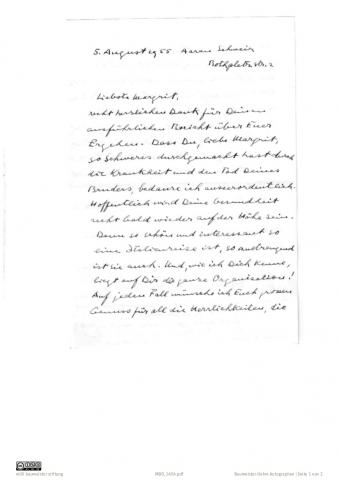 5. August 1955 Aarau Schweiz
Rothpletzstr. 2
Liebste Margrit,
recht herzlichen Dank für Deinen
ausführlichen Bericht über Euer
Ergehen. Dass Du, liebe Margrit,
so Schweres durchgemacht hast durch
die Krankheit und den Tod Deines
Bruders, bedaure ich ausserordentlich.
Hoffentlich wird Deine Gesundheit
recht bald wieder auf der Höhe sein.
Denn so schön und interessant so
eine Italienreise ist, so anstrengend
ist sie auch. Und, wie ich Dich kenne,
liegt auf Dir die ganze Organisation!
Auf jeden Fall wünsche ich Euch grossen
Genuss für all die Herrlichkeiten, die
willi baumeister stiftung
Baumeister Online Autographen | Seite 1 von 2